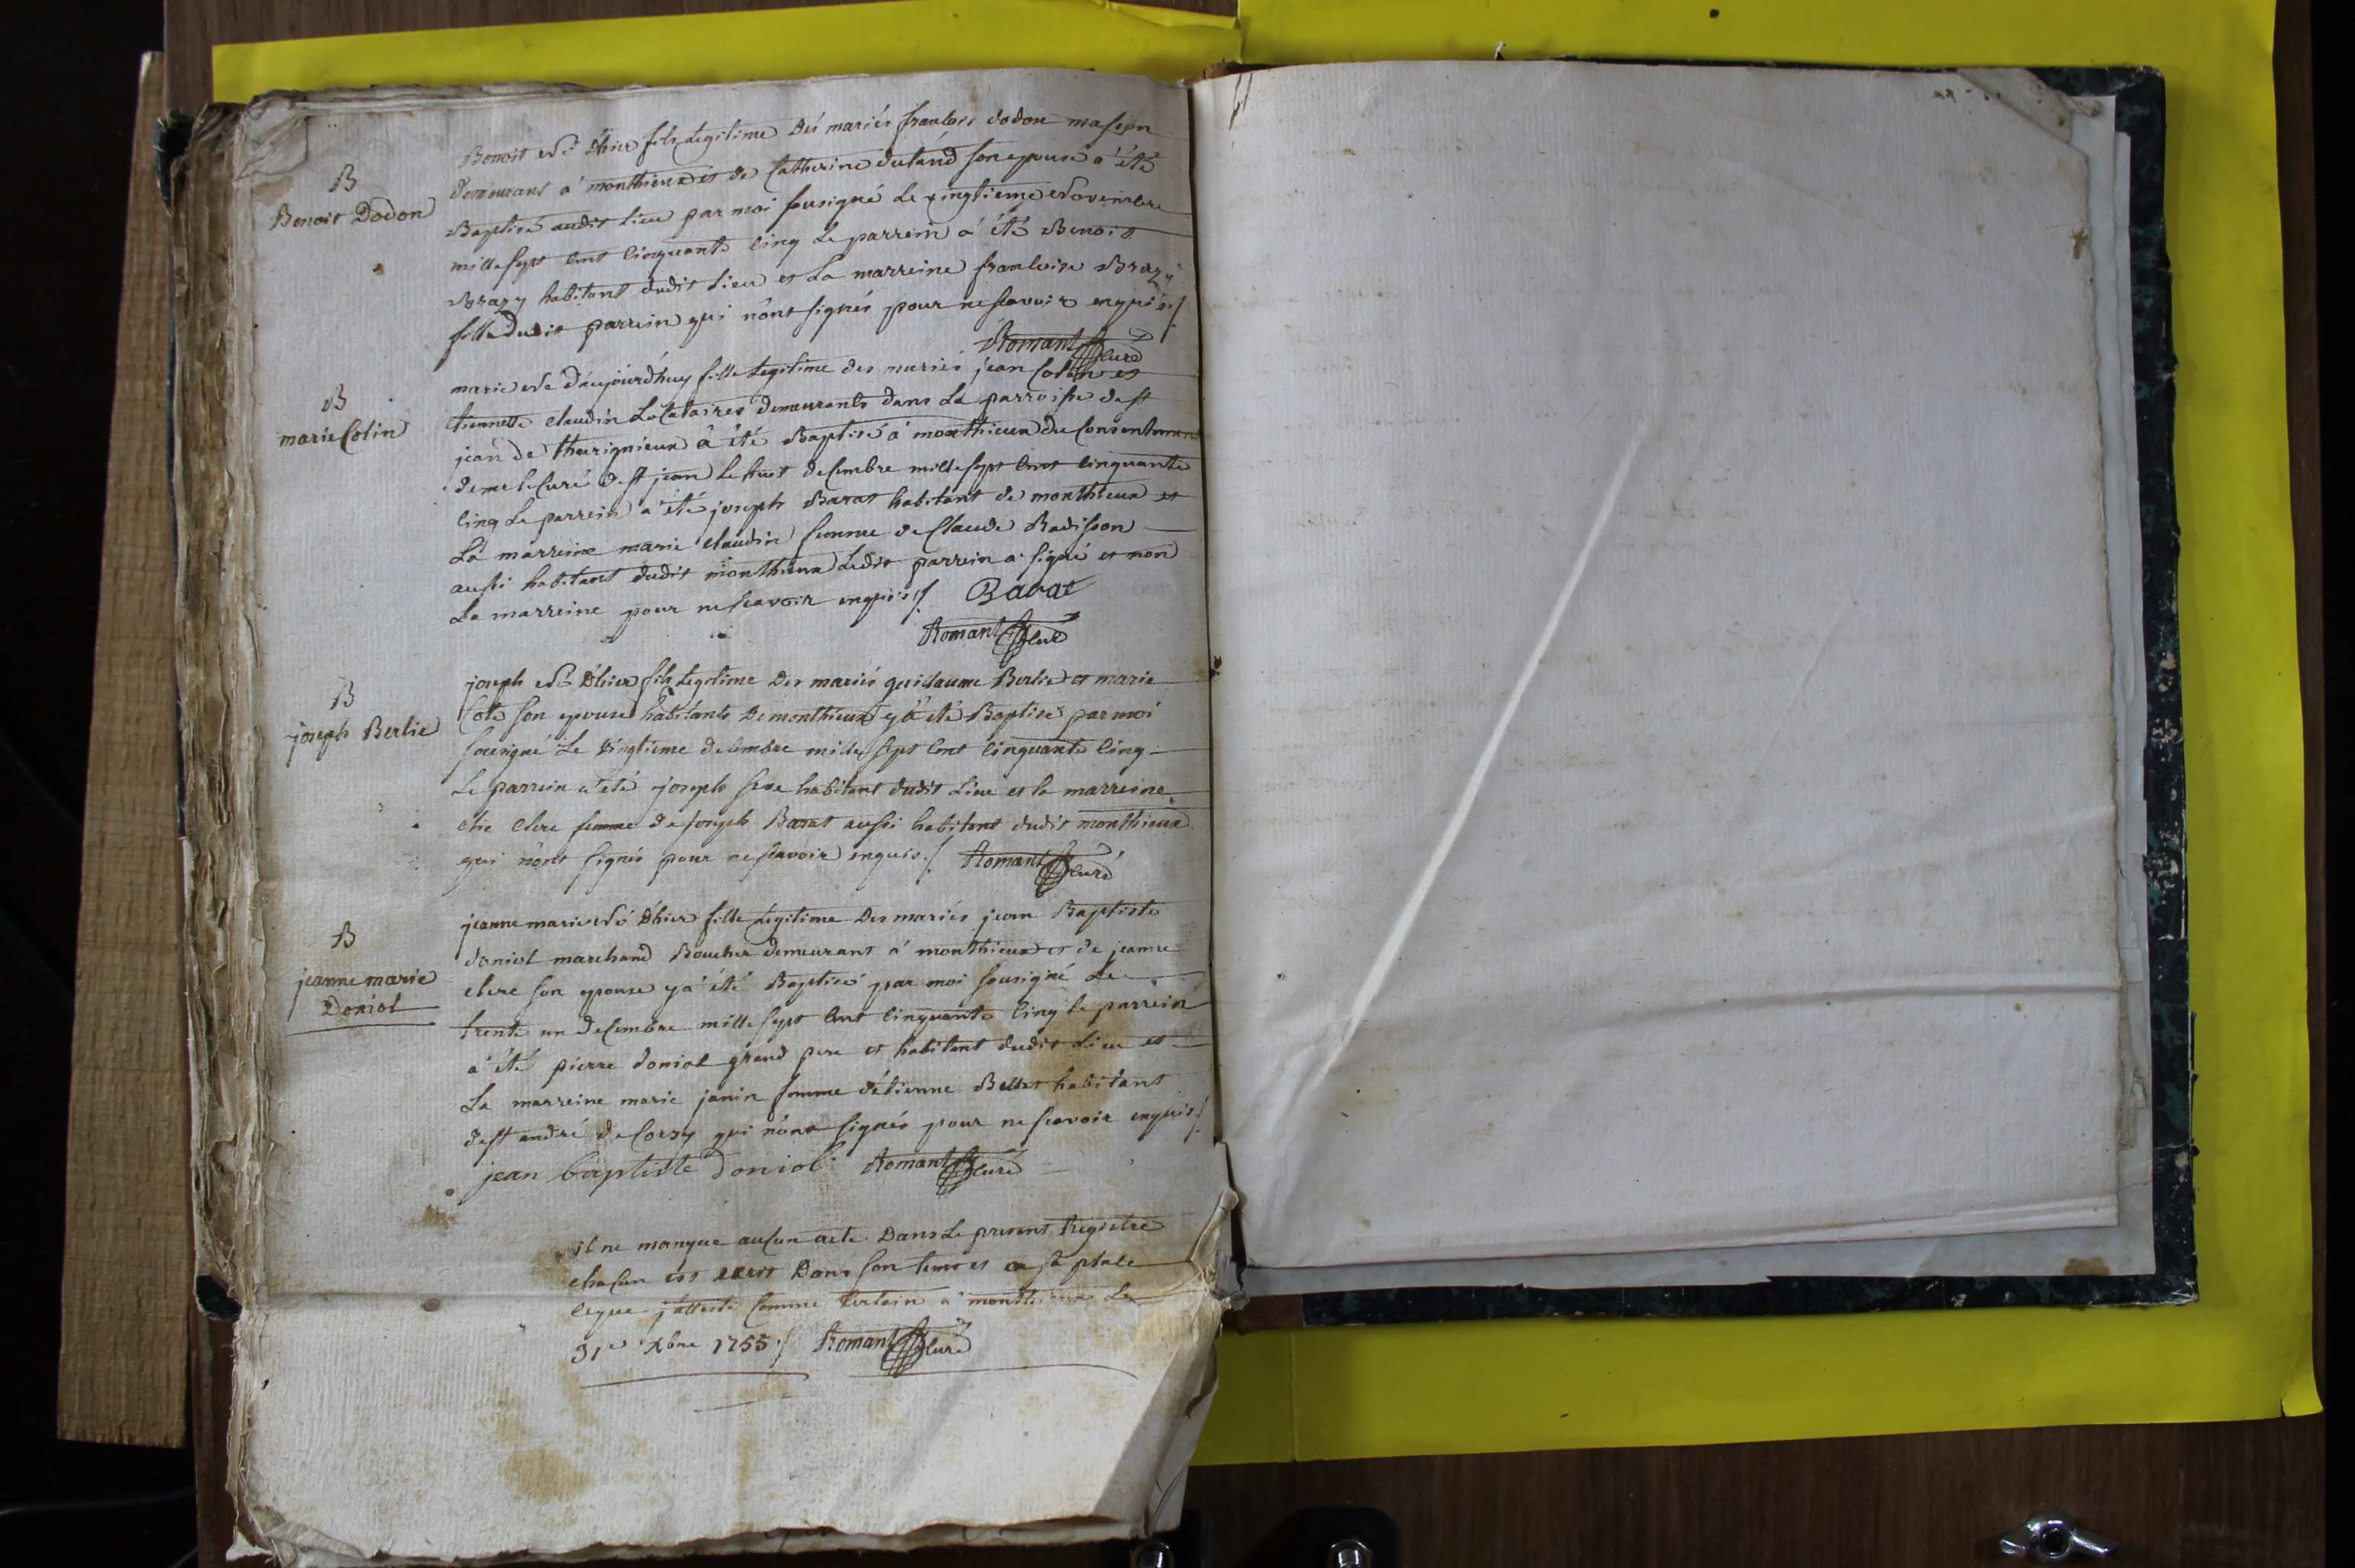 B
Benoit Dodon
Benoit Né D'hier fils Legitime Des mariés francois dodon masson
demeurant a' monthieux et de Catherine dutand son epouse a' été
Baptisé audit Lieu par moi sousigné Le vingtieme Novembre
mille sept cent cinquante cinq Le parrein a' été Benoit
Brazy habitant dudit Lieu et La marreine francoise Brazy
fille dudit parrein qui n'ont signés pour ne scavoir enquis./
Romant Curé
B
marie Colin
marie Née d'aujourd'huy fille Legitime des mariés jean Colin et
etiennette claudin Locataires demeurants dans La parroisse de st
jean de thurignieux a' été Baptisé a' monthieux du Consentement
de mr le Curé de st jean le huit decembre mille sept cent cinquante
cinq Le parrein a' été joseph Barat habitant de monthieux et
La marreine marie claudin femme de Claude Badisson
aussi habitant dudit monthieux Ledit parrein a signé et non
La marreine pour ne scavoir enquis ./. Barat
Romant Curé
B
joseph Berlie
joseph Né D'hier fils Legitime Des mariés guillaume Berlie et marie
Cote son epouse habitants De monthieux y a' été Baptisé par moi
sousigné Le vingtieme decembre mille sept cent cinquante cinq
Le parrein a été joseph habitant dudit Lieu et la marreine
clere femme de joseph Barat aussi habitant dudit monthieux
qui n'ont signés pour ne scavoir enquis ./. Romant Curé
B
jeanne marie
Doniol
jeanne marie Né D'hier fille Legitime Des mariés jean Baptiste
doniol marchand Boucher demeurant a' monthieux et de jeanne
clere son epouse y a' été Baptisé par moi sousigné Le
trente un decembre mille sept cent cinquante cinq le parrein
a' été pierre doniol grand pere et habitant dudit Lieu et
La marreine marie janin femme d'étienne Bellet habitant
de st andré de Corzy qui n'ont signés pour ne scavoir enquis ./.
jean baptiste doniol Romant Curé
il ne manque aucun acte Dans Le present Registre
chacun est ecrit Dans son tems et a sa place
ce que j'atteste comme certain a' monthieux Le
31e Xbre 1755 ./. Romant Curé